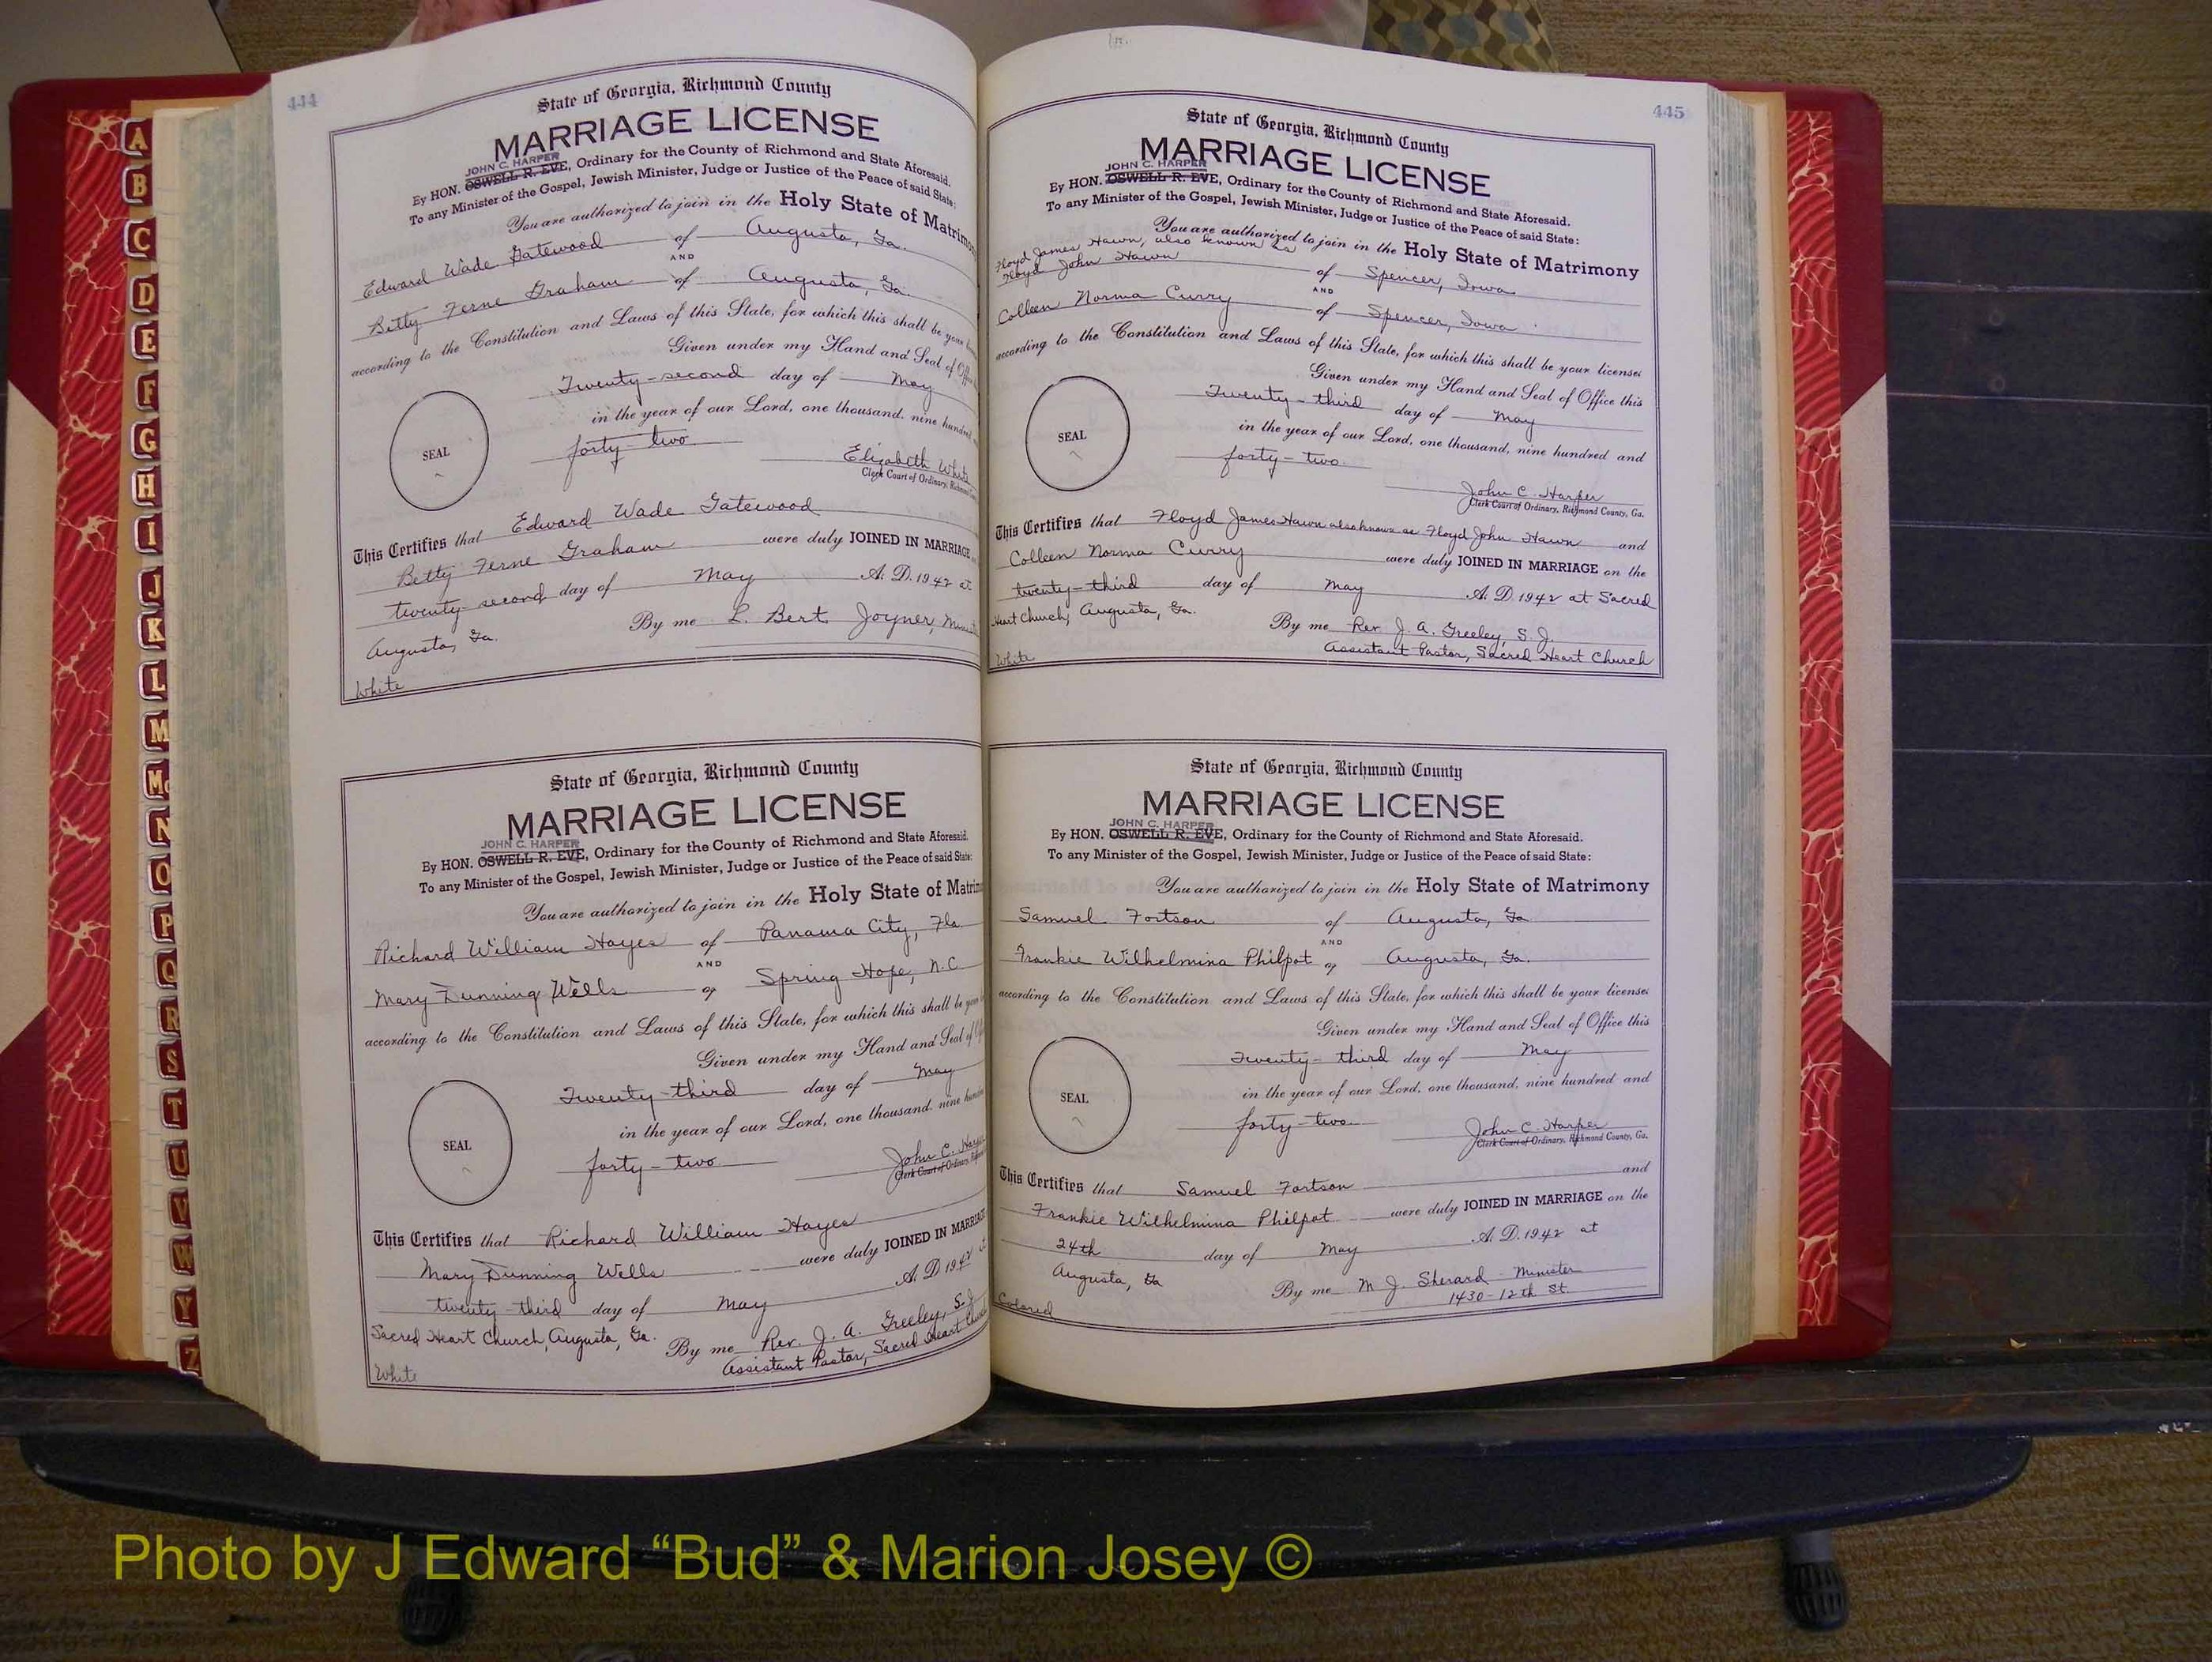 444
State of Georgia, Richmond County
MARRIAGE LICENSE
JOHN C. HARPER
By HON. OSWELL R. EVE, Ordinary for the County of Richmond and State Aforesaid.
To any Minister of the Gospel, Jewish Minister, Judge or Justice of the Peace of said State:
You are authorized to join in the Holy State of Matrimo
Edward Wade Gatewood of Augusta, Ga.
AND
Betty Ferne Graham of Augusta, Ga.
according to the Constitution and Laws of this State, for which this shall be your
Given under my Hand and Seal of Off
Twenty-second day of May
in the year of our Lord, one thousand, nine hundred
forty-two
SEAL
Elizabeth Whit
Clerk Court of Ordinary, Richmond
This Certifies that Edward Wade Gatewood
Betty Ferne Graham were duly JOINED IN MARRIAGE
twenty-second day of May A. D. 1942 at
Augusta, Ga. By me L. Bert Joyner,
White
State of Georgia, Richmond County
MARRIAGE LICENSE
JOHN C. HARPER
By HON. OSWELL R. EVE, Ordinary for the County of Richmond and State Aforesaid.
To any Minister of the Gospel, Jewish Minister, Judge or Justice of the Peace of said State:
You are authorized to join in the Holy State of Matrim
Richard William Hayes of Panama City, Fla.
AND
Mary Dunning Wells of Spring Hope, N.C
according to the Constitution and Laws of this State, for which this shall be your
Given under my Hand and Seal of
Twenty-third day of May
in the year of our Lord, one thousand nine hundred
forty-two
SEAL
John C. Harper
Clerk Court of Ordinary,
This Certifies that Richard William Hayes
Mary Dunning Wells were duly JOINED IN MARRIAGE
twenty-third day of May A. D 1942 at
Sacred Heart Church, Augusta, Ga. By me Rev. J. A. Greeley, S. J.
Assistant Pastor, Sacred Heart Church
White
445
State of Georgia, Richmond County
MARRIAGE LICENSE
JOHN C. HARPER
By HON. OSWELL R. EVE, Ordinary for the County of Richmond and State Aforesaid.
To any Minister of the Gospel, Jewish Minister, Judge or Justice of the Peace of said State:
You are authorized to join in the Holy State of Matrimony
Floyd James Hawn, also known as
Floyd John Hawn of Spencer, Iowa
AND
Colleen Norma Curry of Spencer, Iowa
according to the Constitution and Laws of this State, for which this shall be your license:
Given under my Hand and Seal of Office this
Twenty-third day of May
in the year of our Lord, one thousand, nine hundred and
forty-two
SEAL
John C. Harper
Clerk Court of Ordinary, Richmond County, Ga.
This Certifies that Floyd James Hawn also known as Floyd John Hawn and
Colleen Norma Curry were duly JOINED IN MARRIAGE on the
twenty-third day of May A. D. 1942 at Sacred
Heart Church, Augusta, Ga. By me Rev. J. A. Greeley, S. J.
Assistant Pastor, Sacred Heart Church
White
State of Georgia, Richmond County
MARRIAGE LICENSE
JOHN C. HARPER
By HON. OSWELL R. EVE, Ordinary for the County of Richmond and State Aforesaid.
To any Minister of the Gospel, Jewish Minister, Judge or Justice of the Peace of said State:
You are authorized to join in the Holy State of Matrimony
Samuel Fortson of Augusta, Ga
AND
Frankie Wilhelmina Philpot of Augusta, Ga.
according to the Constitution and Laws of this State, for which this shall be your license:
Given under my Hand and Seal of Office this
Twenty-third day of May
in the year of our Lord, one thousand, nine hundred and
forty-two
SEAL
John C. Harper
Clerk Court of Ordinary, Richmond County, Ga.
This Certifies that Samuel Fortson and
Frankie Wilhelmina Philpot were duly JOINED IN MARRIAGE on the
24th day of May A. D. 1942 at
Augusta, Ga By me M. J. Sherard Minister
1430-12th St.
Colored
A
B
C
D
E
F
G
H
I
J
K
L
M
Mc
N
O
P
Q
R
S
T
U
V
W
Y
Z
Photo by J Edward “Bud” & Marion Josey ©